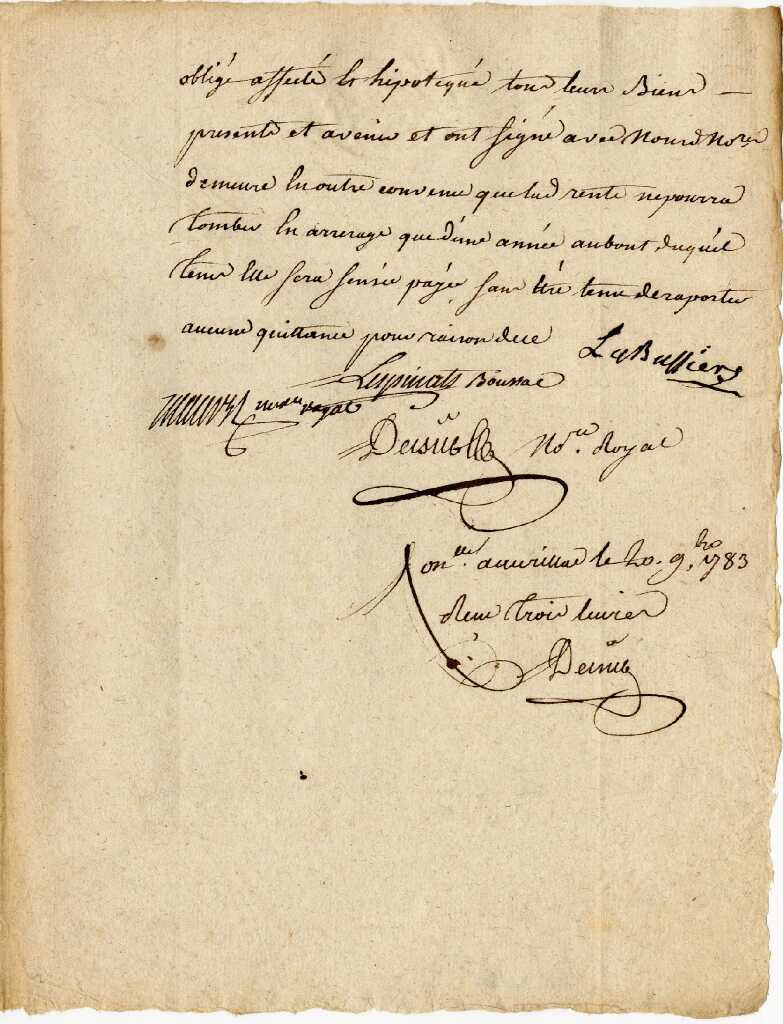 obligé affecté et hipotequé tous leurs Biens —
presents et avenir et ont signé avec Nousd Nores
demeure en outre convenu que lad rente ne pourra
tomber en arrerage que d'une année au bout duquel
tems elle sera sensée payée sans être tenu de raporter
aucune quittance pour raison de ce LaBussiere
Lespinats Boussac
royal
Nore Royal
Conllé a aurillac le 20. 9.bre 1783
Reçu trois livres